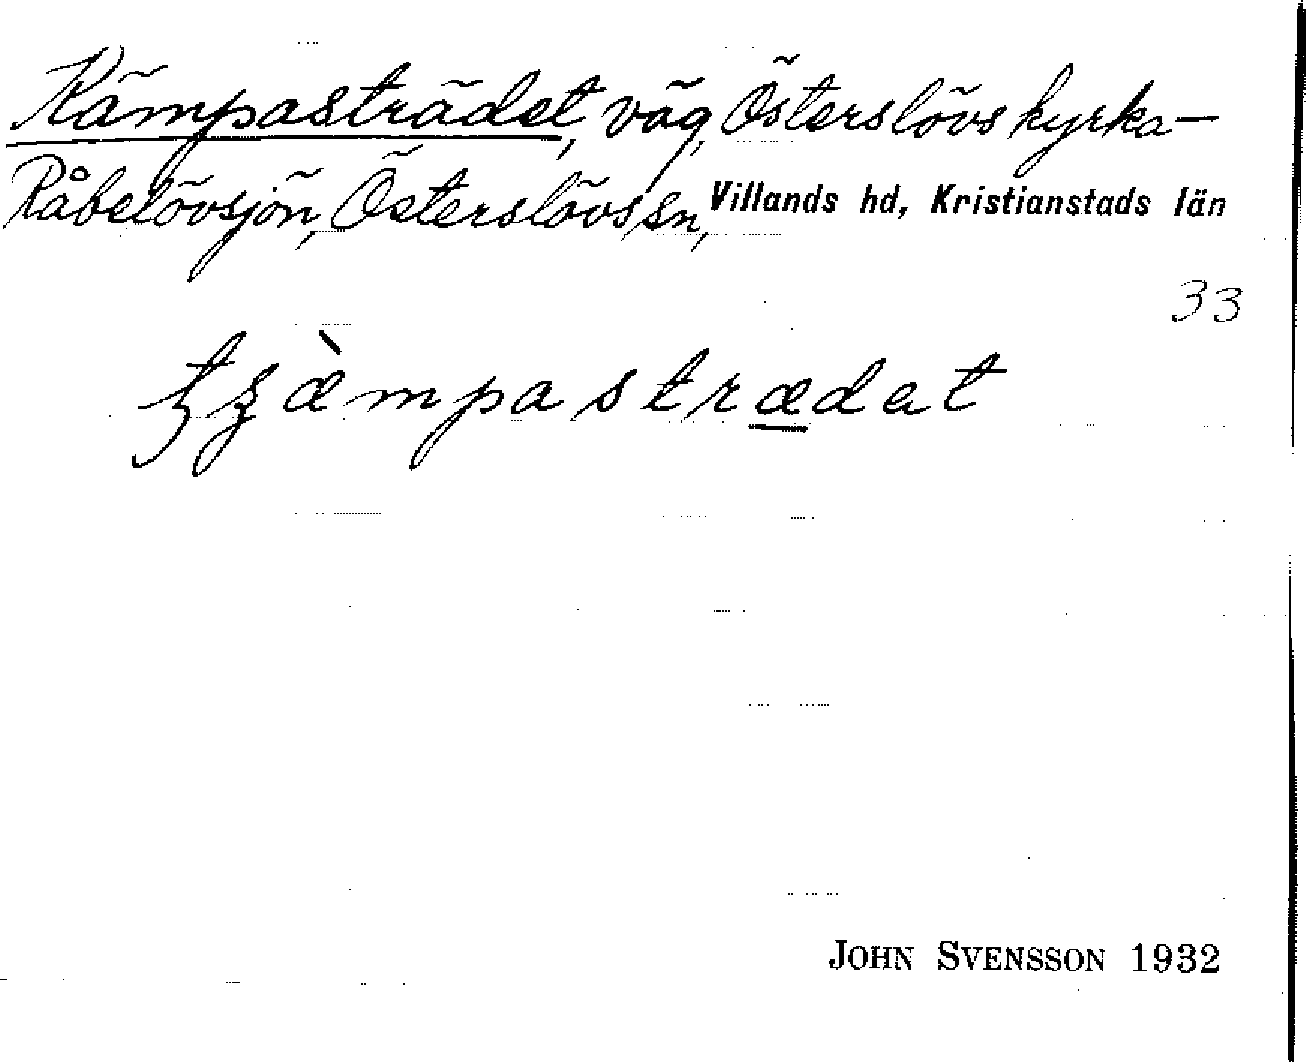 Kämpasträdet, väg, Österslövs kyrka—
Råbelövsjön, Österslövs sn, Villands hd, Kristianstads län
33
tʒæ̀mpastrædat
JOHN SVENSSON 1932